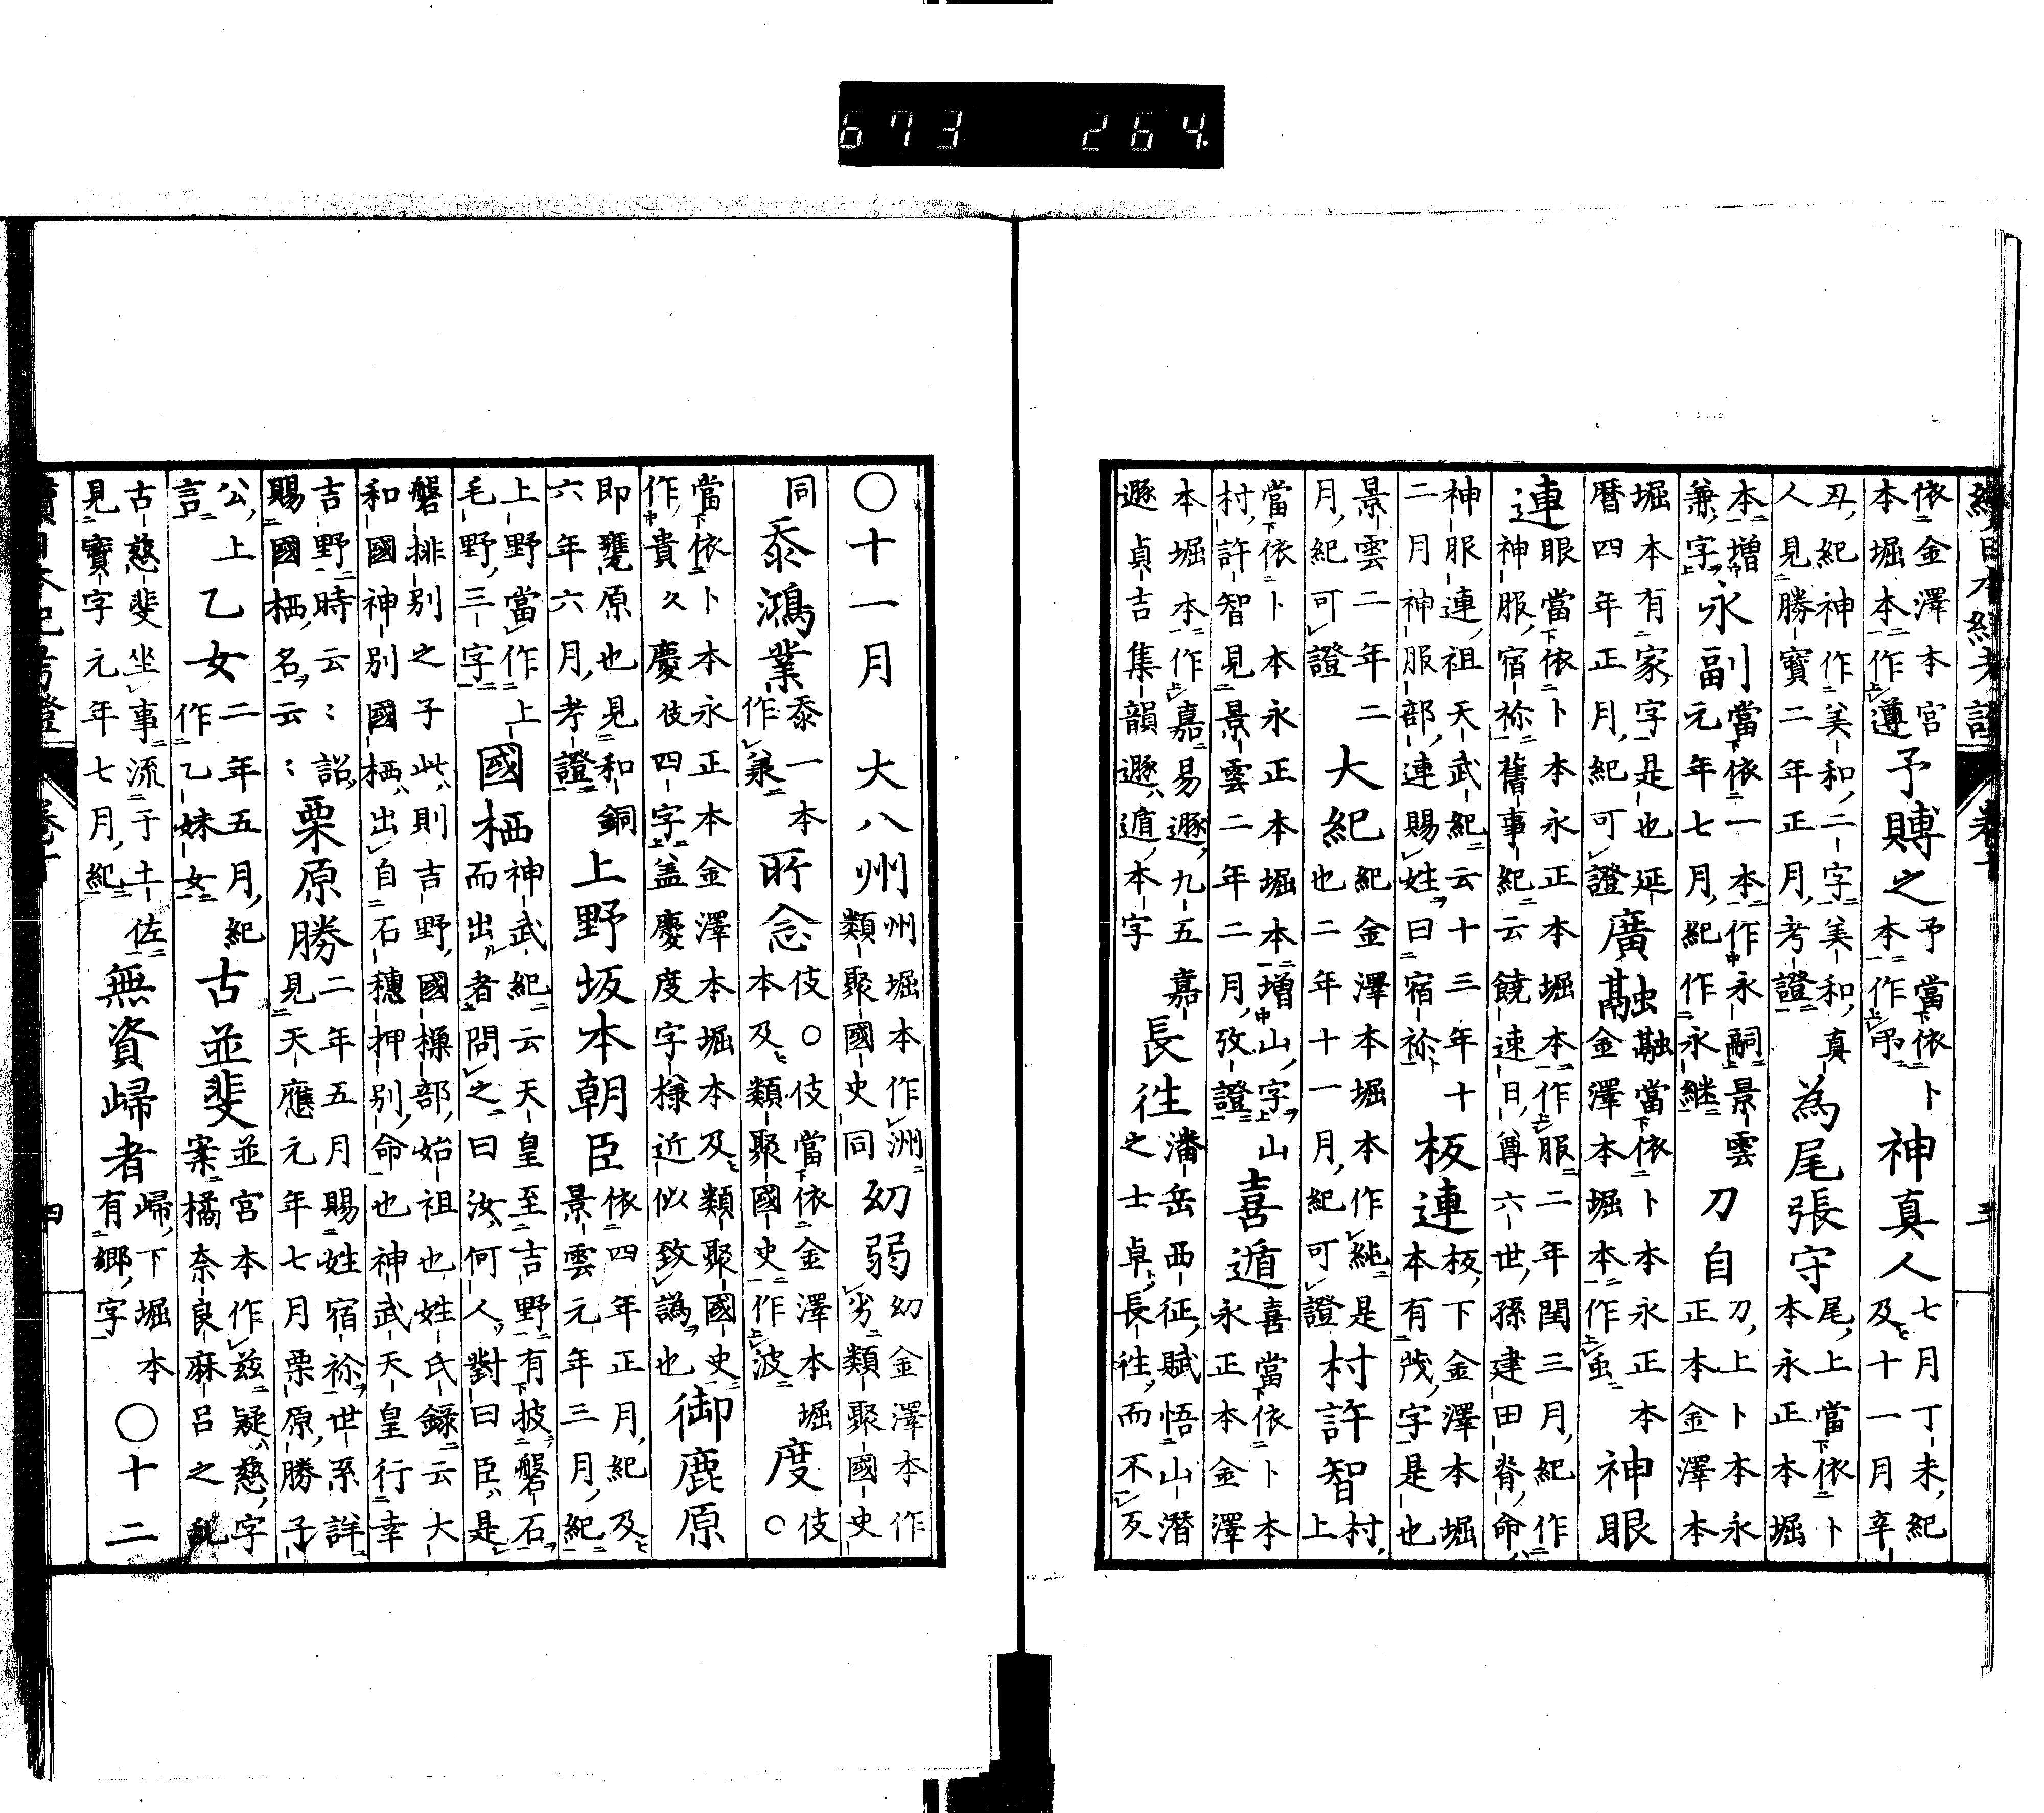 673 264.
續日本紀考證 卷十 三
依金澤本宮本堀本作遵 予賻之 予當依卜本作吊 神真人 七月丁未紀及十一月辛
丑紀神作美和二字美和真人見勝寶二年正月考證 為尾張守 尾上當依卜本永正本堀
本增兼字 永副 當依一本作永嗣景雲元年七月紀作永継 刀自 刀上卜本永正本金澤本
堀本有家字是也延暦四年正月紀可證 廣融 融當依卜本永正本金澤本堀本作虫 神眼
連 眼當依卜本永正本堀本作服二年閏三月紀作神服宿祢舊事紀云饒速日尊六世孫建田脊命
神服連祖天武紀云十三年十二月神服部連賜姓曰宿祢 板連 板下金澤本堀本有茂字是也
景雲二年二月紀可證 大紀 紀金澤本堀本作純是也二年十一月紀可證 村許智 村上
當依卜本永正本堀本增山字山村許智見景雲二年二月攷證 喜遁 喜當依卜本永正本金澤
本堀本作嘉易遯九五嘉遯貞吉集韻遯遁本字 長徃 潘岳西征賦悟山潛之士卓長徃而不反
〇十一月 大八州 州堀本作洲類聚國史同 幼弱 幼金澤本作劣類聚國史
同 忝鴻業 忝一本作兼 所念 伎〇伎當依金澤本堀本及類聚國史作波 度 〇伎
當依卜本永正本金澤本堀本及類聚國史作貴久慶伎四字盖慶度字様近似致譌也 御鹿原
即甕原也見和銅六年六月考證 上野坂本朝臣 依四年正月紀及景雲元年三月紀
上野當作上毛野三字 國栖 神武紀云天皇至吉野有披磐石而出者問之曰汝何人對曰臣是
磐排別之子此則吉野國樔部始祖也姓氏録云大和國神別國栖出自石穗押別命也神武天皇行幸
吉野時云云詔賜國栖名云云 栗原勝 二年五月賜姓宿祢世系詳見天應元年七月栗原勝子
公上 乙女 二年五月紀作乙妹女 古並斐 並宮本作兹疑慈字案橘奈良麻呂之乱言
古慈斐坐事流于土佐見寶字元年七月紀 無資歸者 歸下堀本有鄉字 〇十二
續日本紀考證 卷十 四